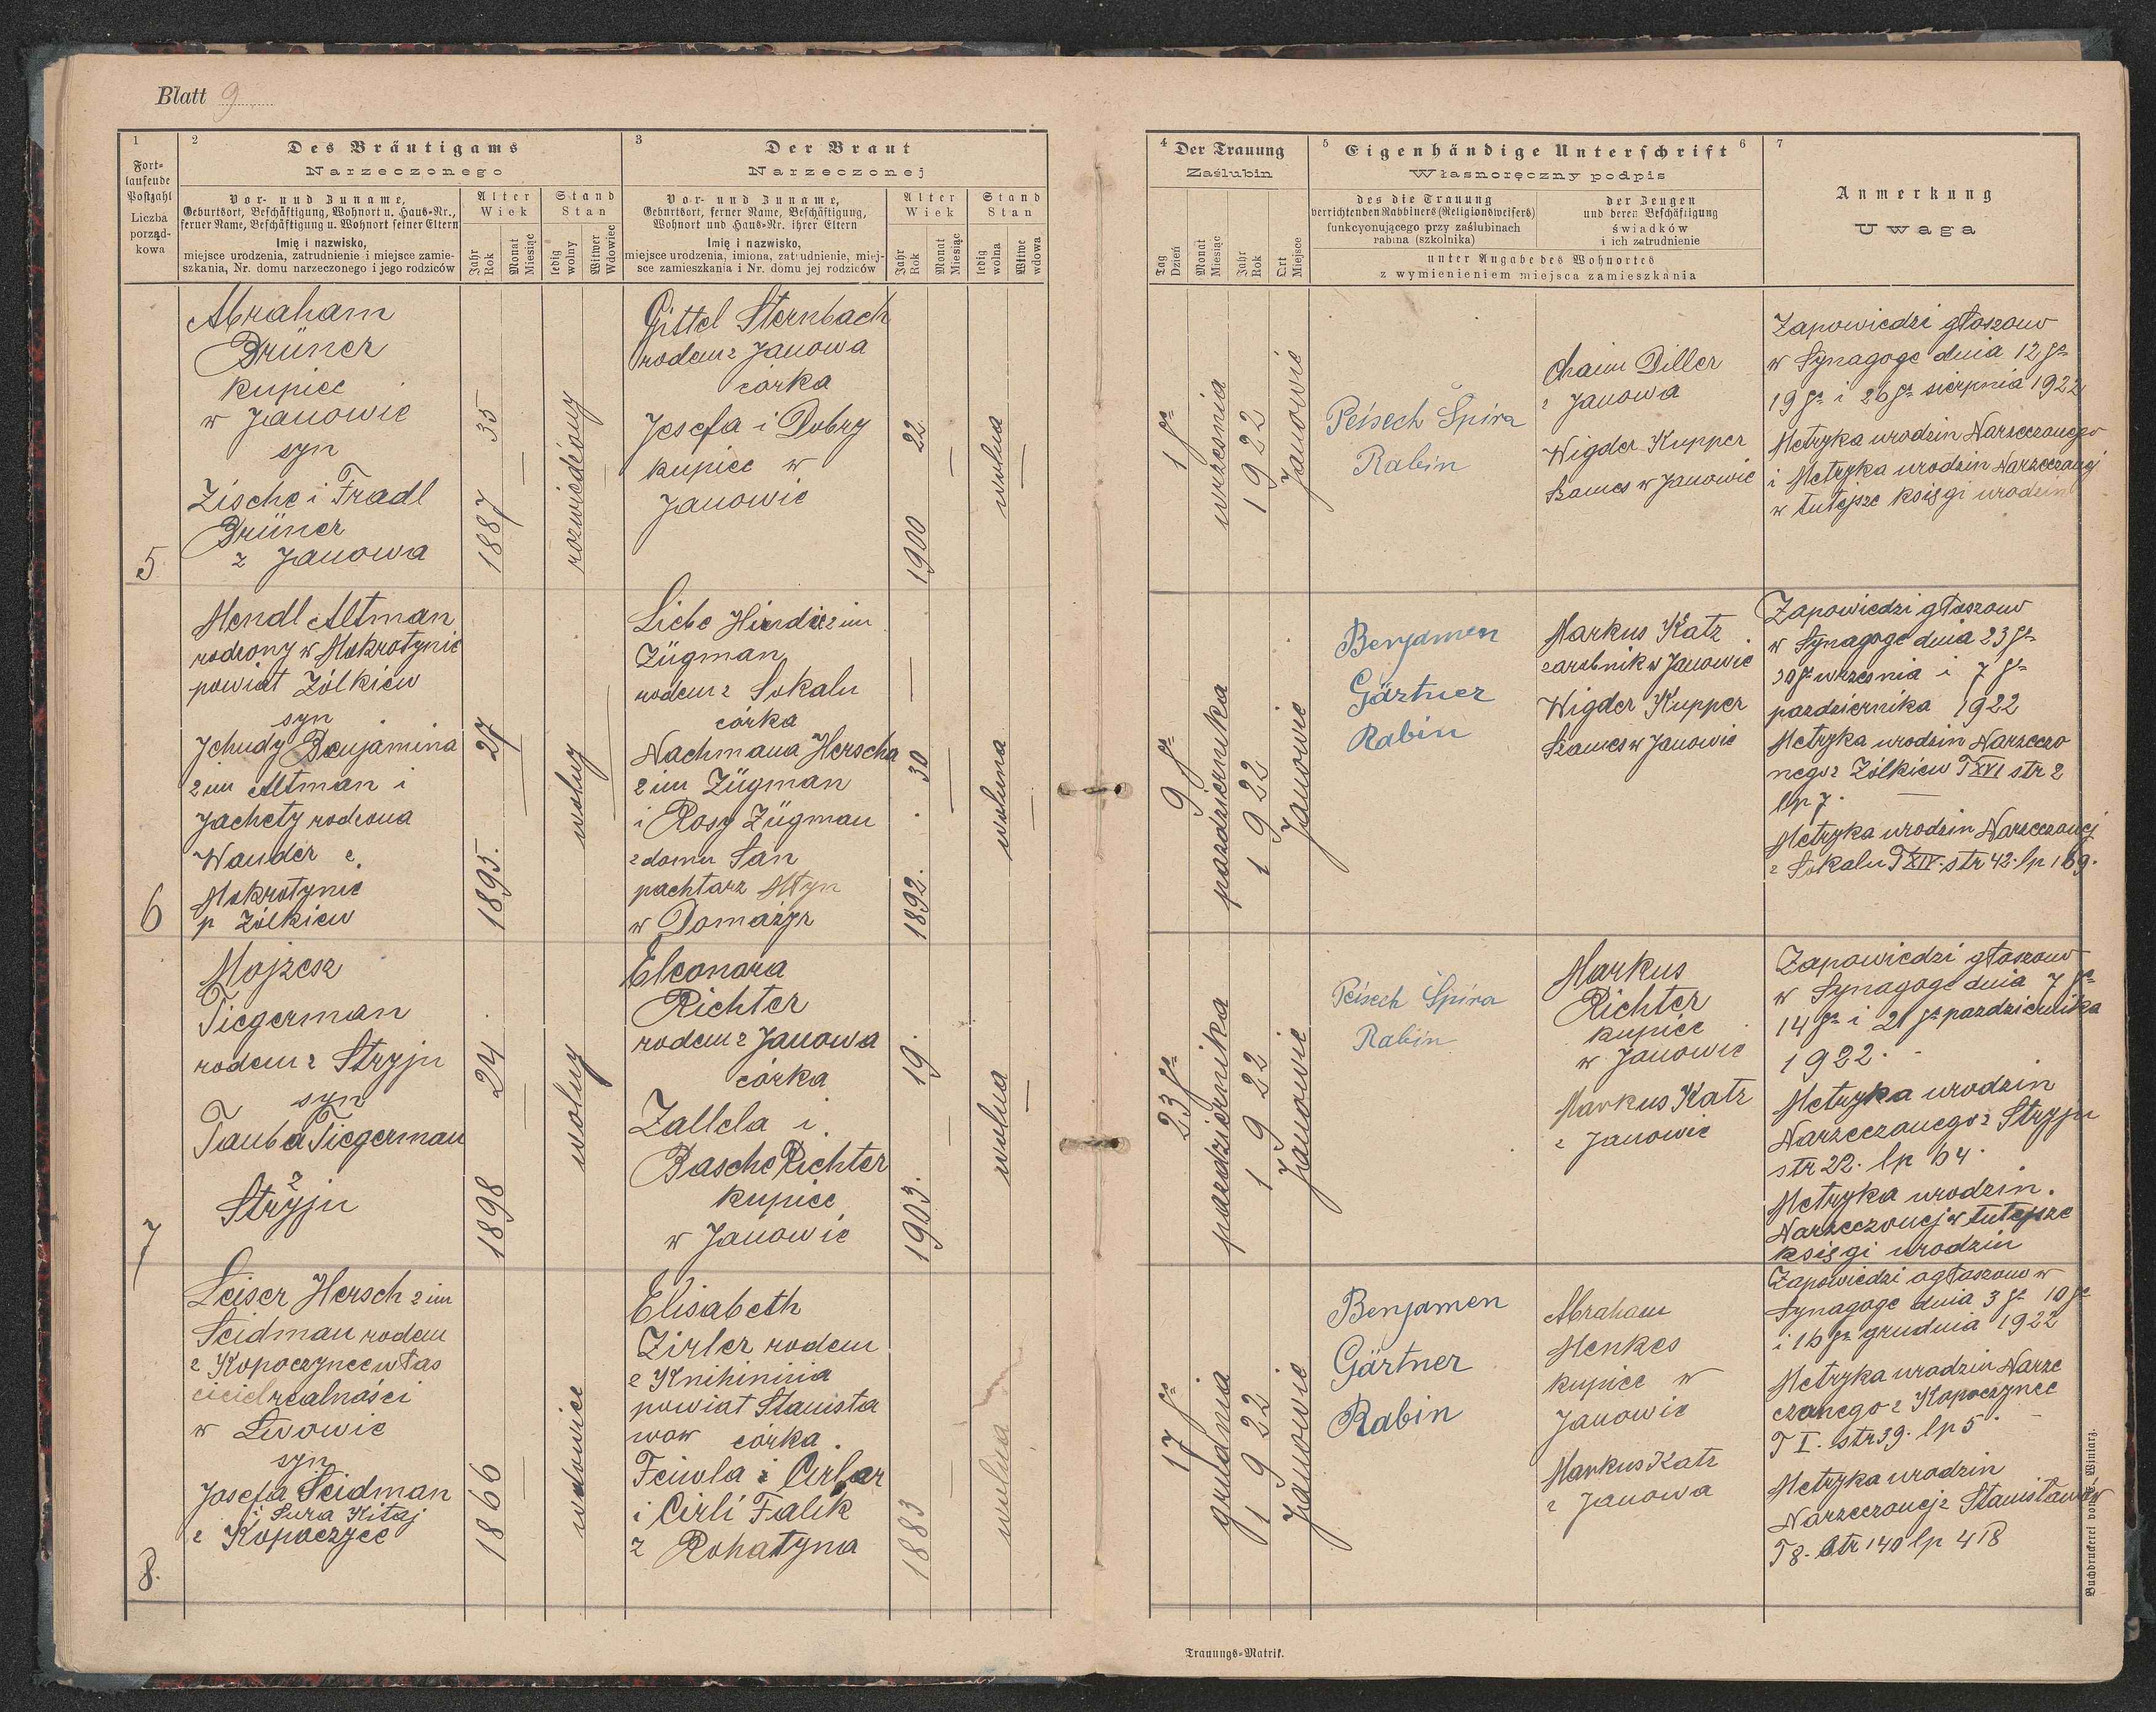 Blatt 9
1
Fort-
laufende
Postzahl
Liczba
porząd-
kowa
2
Des Bräutigams
Narzeczonego
Vor- und Zuname,
Geburtsort, Beschäftigung, Wohnort u. Haus-Nr.,
ferner Name, Beschäftigung u. Wohnort seiner Eltern
Imię i nazwisko,
miejsce urodzenia, zatrudnienie i miejsce zamie-
szkania, Nr. domu narzeczonego i jego rodziców
Alter
Wiek
Jahr
Rok
Monat
Miesiąc
Stand
Stan
ledig
wolny
Witwer
Wdowiec
3
Der Braut
Narzeczonej
Vor- und Zuname,
Geburtsort, ferner Name, Beschäftigung,
Wohnort und Haus-Nr. ihrer Eltern
Imię i nazwisko,
miejsce urodzenia, imiona, zatrudnienie, miej-
sce zamieszkania i Nr. domu jej rodziców
Alter
Wiek
Jahr
Rok
Monat
Miesiąc
Stand
Stan
ledig
wolna
Witwe
wdowa
4
Der Trauung
Zaślubin
Tag
Dzień
Monat
Miesiąc
Jahr
Rok
Ort
Miejsce
5
Eigenhändige Unterschrift
6
Własnoręczny podpis
des die Trauung
verrichtenden Rabbiners (Religionsweisers)
funkcyonującego przy zaślubinach
rabina (szkolnika)
der Zeugen
und deren Beschäftigung
świadków
i ich zatrudnienie
unter Angabe des Wohnortes
z wymienieniem miejsca zamieszkania
7
Anmerkung
Uwaga
5
Abraham
Brüner
kupiec
w Janowie
syn
Zische i Fradl
Brüner
z Janowa
1887 35
rozwiedziony
Gittel Sternbach
rodem z Janowa
córka
Josefa i Dobry
kupiec w
Janowie
1900 22
wolna
1 go
września
1922
Janowie
Peisech Spira
Rabin
Chaim Diller
z Janowa
Wigder Kupper
Szames w Janowie
Zapowiedzi głoszono
w Synagoge dnia 12 go
19 go i 26 go sierpnia 1922
Metryka urodzin Narzeczonego
i Metryka urodzin Narzeczonej
w tutejsze księgi urodzin
6
Mendl Altman
rodzony w Mokrotynie
powiat Żółkiew
syn
Jehudy Benjamina
2 im Altman i
Jachety rodzona
Wander z
Mokrotynie
p Żółkiew
1895. 27
wolny
Liebe Hinde 2 im
Zügman
rodem z Sokalu
córka
Nachmana Herscha
2 im Zügman
i Rosy Zügman
z domu San
pachtarz Młyn
w Domażyr
1892. 30
wolna
9 go
pazdziernika
1922
Janowie
Benjamen
Gärtner
Rabin
Markus Katz
zarobnik w Janowie
Wigder Kupper
Szames w Janowie
Zapowiedzi głoszono
w Synagoge dnia 23 go
30 go września i 7 go
pazdziernika 1922
Metryka urodzin Narzeczo
nego z Żółkiew T XVI str 2
lp 7.
Metryka urodzin Narzeczonej
z Sokalu T XIV. str 42. lp 169.
7
Mojzesz
Tiegerman
rodem z Stryju
syn
Tauba Tiegerman
z
Stryju
1898 24
wolny
Eleonara
Richter
rodem z Janowa
córka
Zallela i
Basche Richter
kupiec
w Janowie
1903. 19.
wolna
23 go
pazdziernika
1922
Janowie
Peisech Spira
Rabin
Markus
Richter
kupiec
w Janowie
Markus Katz
z Janowie
Zapowiedzi głoszono
w Synagoge dnia 7 go
14 go i 21 go pazdziernika
1922.
Metryka urodzin
Narzeczonego z Stryju
str 22. lp 64.
Metryka urodzin.
Narzeczonej w tutejsze
księgi urodzin
8.
Leiser Hersch 2 im
Seidman rodem
z Kopoczynce włas
ciciel realności
w Lwowie
syn
Josefa Seidman
i Sura Kitaj
z Kopoczyce
1866
wdowiec
Elisabeth
Zirler rodem
z Knihinina
powiat Stanisła
wow córka.
Feiwla i
i Cirli Falik
z Rohatyna
1883
wolna
17 go
grudnia
1922
Janowie
Benjamen
Gärtner
Rabin
Abraham
Menkes
kupiec w
Janowie
Markus Katz
z Janowa
Zapowiedzi ogłoszono w
Synagoge dnia 3 go 10 go
i 16 go grudnia 1922
Metryka urodzin Narze
czonego z Kopoczynce
T I. str 39. lp 5.
Metryka urodzin
Narzeczonej z Stanisławów
T 8. Str 140 lp 418
Trauungs-Matrik.